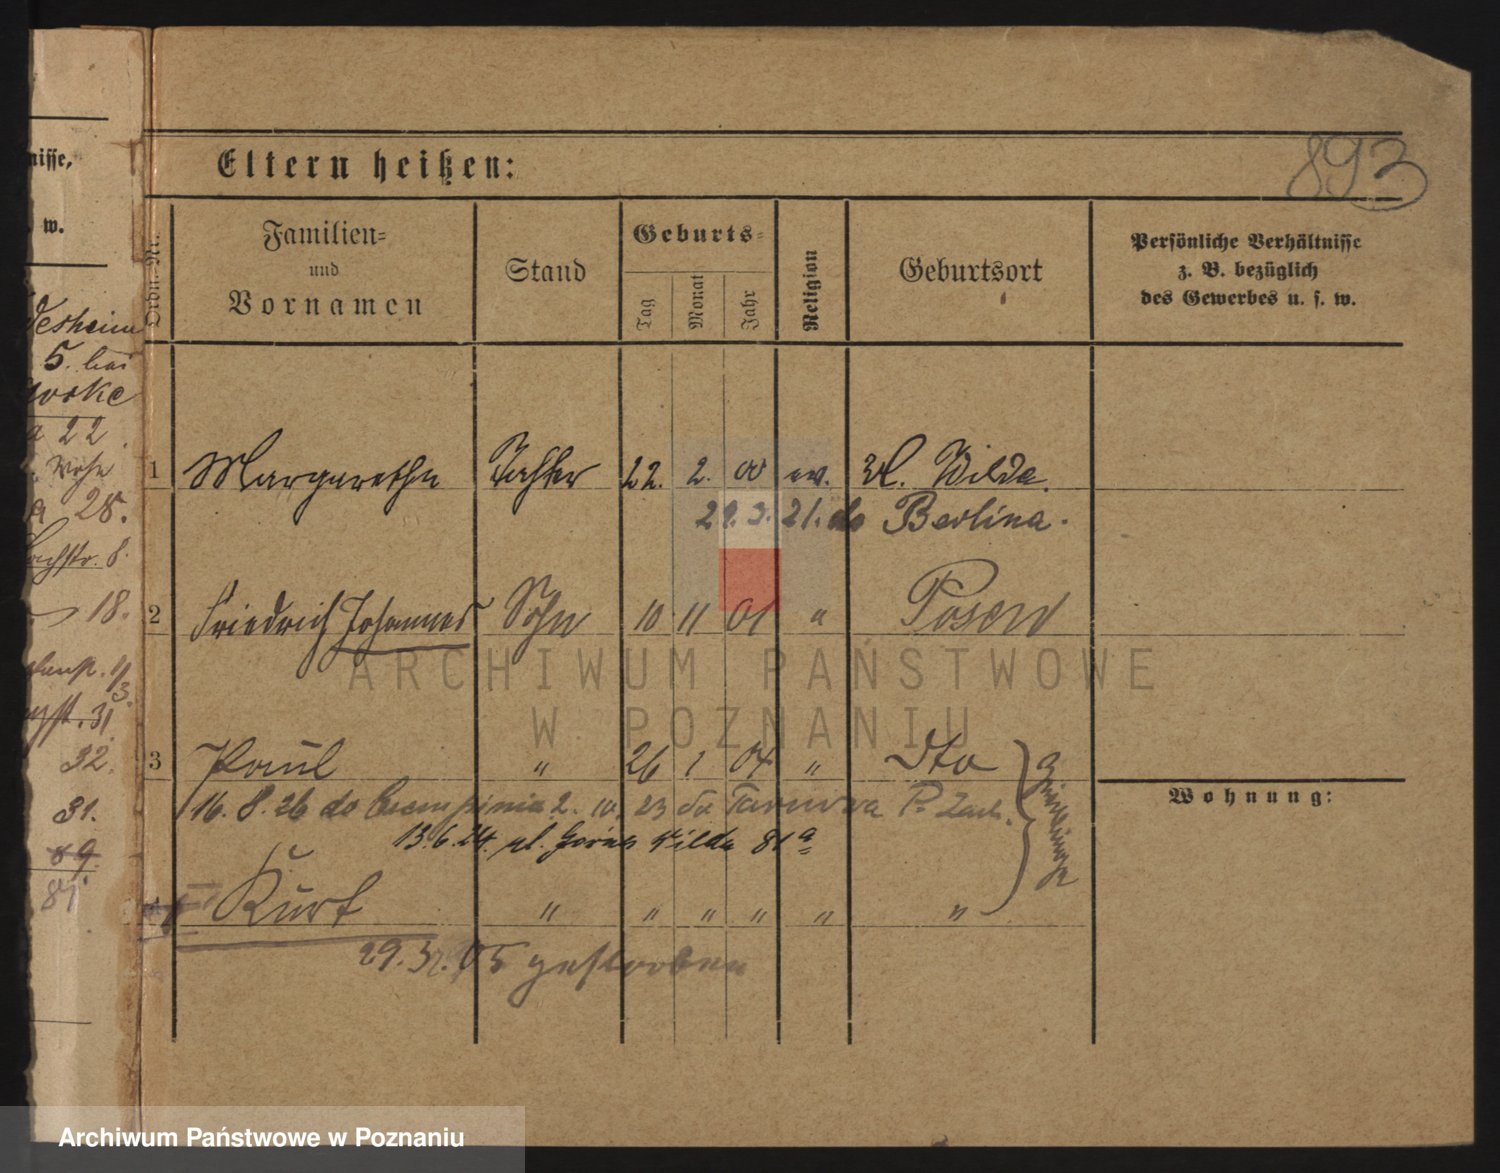 893
Eltern heißen:
nisse,
w.
Ordn.-Nr.
Familien-
und
Vornamen
Stand
Geburts-
Tag
Monat
Jahr
Religion
Geburtsort
Persönliche Verhältnisse
z. B. bezüglich
des Gewerbes u. s. w.
desheim
5. bei
22
28.
18.
31.
32.
31.
89.
81.
1 Margarethe Tochter 22. 2. 00 ev. Kl. Wilda.
29. 3. 21. do Berlina.
2 Friedrich Johannes Sohn 10 11 01 " Posen
3 Paul " 26 1 04 " Dto
Zwillinge
16. 8. 26 do 2. 10. 23 do Tarnowa
13.6.24. ul. Górna Wilda 81a
4 Kurt " " " " " "
29. 05 gestorben
Wohnung:
ARCHIWUM PAŃSTWOWE
W POZNANIU
Archiwum Państwowe w Poznaniu